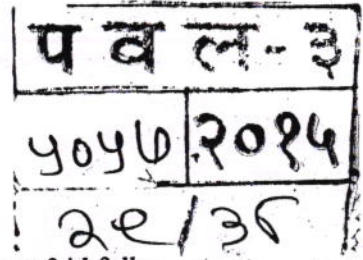 पवल-३
५०५७ २०१५
२९/३८